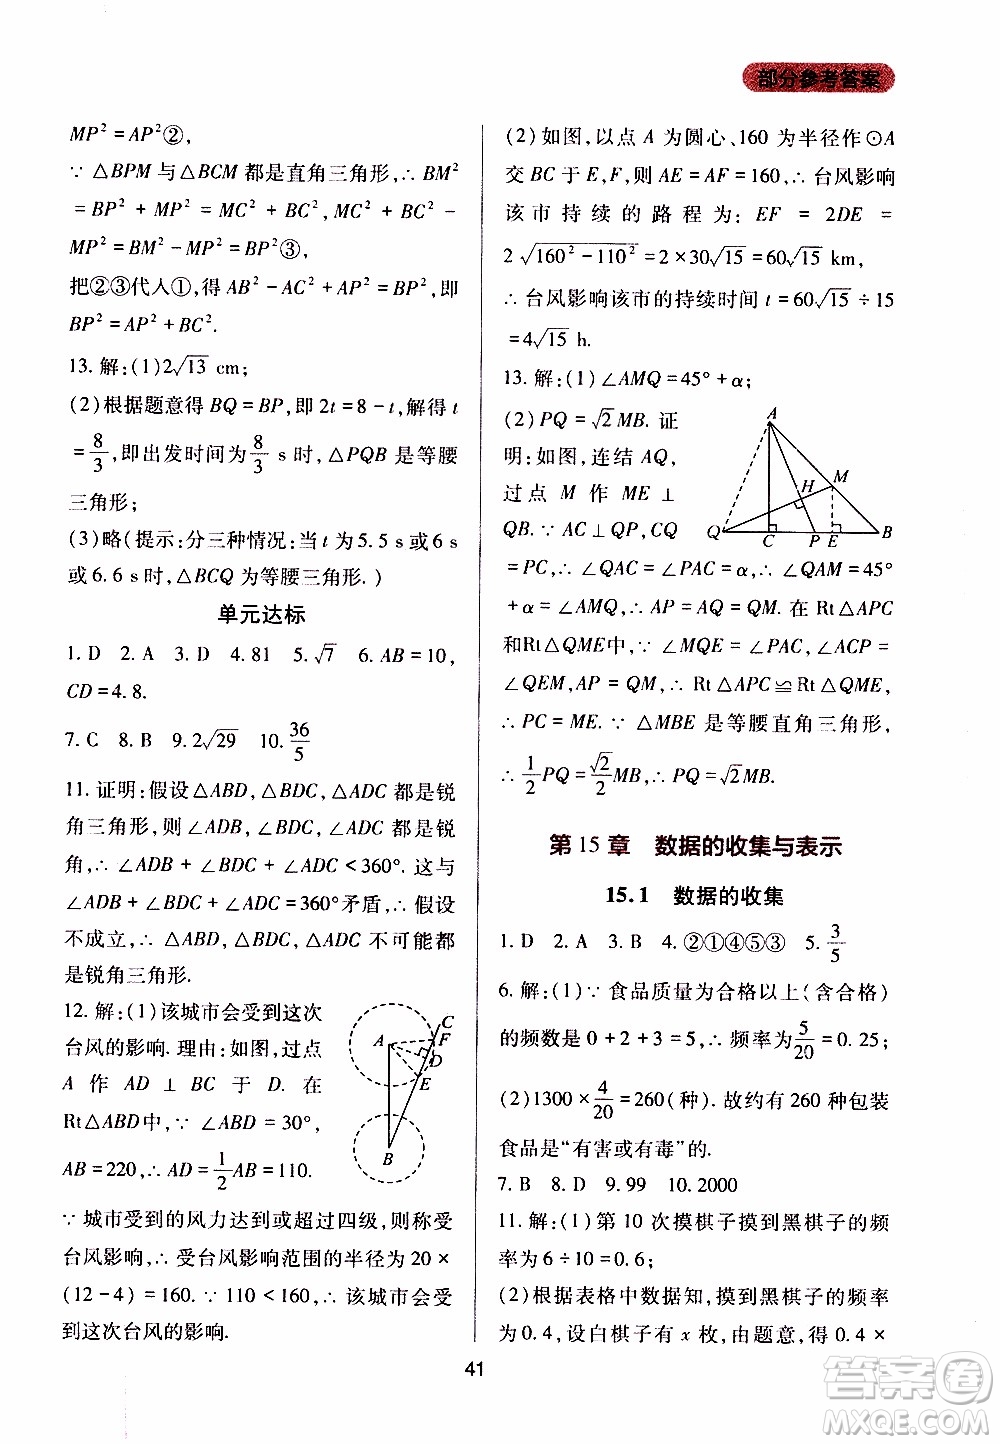 部分参考答案
MP²=AP²②,
∵△BPM与△BCM都是直角三角形,∴BM²
=BP²+MP²=MC²+BC²,MC²+BC²-
MP²=BM²-MP²=BP²③,
把②③代人①,得AB²-AC²+AP²=BP²,即
BP²=AP²+BC².
13.解:(1)2√13 cm;
(2)根据题意得BQ=BP,即2t=8-t,解得t
=8/3,即出发时间为8/3 s时,△PQB是等腰
三角形;
(3)略(提示:分三种情况:当t为5.5 s或6 s
或6.6 s时,△BCQ为等腰三角形.)
单元达标
1.D 2.A 3.D 4.81 5.√7 6.AB=10,
CD=4.8.
7.C 8.B 9.2√29 10.36/5
11.证明:假设△ABD,△BDC,△ADC都是锐
角三角形,则∠ADB,∠BDC,∠ADC都是锐
角,∴∠ADB+∠BDC+∠ADC<360°.这与
∠ADB+∠BDC+∠ADC=360°矛盾,∴假设
不成立,∴△ABD,△BDC,△ADC不可能都
是锐角三角形.
12.解:(1)该城市会受到这次
台风的影响.理由:如图,过点
A作AD⊥BC于D.在
Rt△ABD中,∵∠ABD=30°,
AB=220,∴AD=1/2AB=110.
A
B
C
F
D
E
∵城市受到的风力达到或超过四级,则称受
台风影响,∴受台风影响范围的半径为20×
(12-4)=160.∵110<160,∴该城市会受
到这次台风的影响.
(2)如图,以点A为圆心、160为半径作⊙A
交BC于E,F,则AE=AF=160,∴台风影响
该市持续的路程为:EF=2DE=
2√(160²-110²)=2×30√15=60√15 km,
∴台风影响该市的持续时间t=60√15÷15
=4√15 h.
13.解:(1)∠AMQ=45°+α;
(2)PQ=√2MB.证
明:如图,连结AQ,
过点M作ME⊥
QB.∵AC⊥QP,CQ
A
H
M
Q
C
P
E
B
=PC,∴∠QAC=∠PAC=α,∴∠QAM=45°
+α=∠AMQ,∴AP=AQ=QM.在Rt△APC
和Rt△QME中,∵∠MQE=∠PAC,∠ACP=
∠QEM,AP=QM,∴Rt△APC≌Rt△QME,
∴PC=ME.∵△MBE是等腰直角三角形,
∴1/2PQ=√2/2MB,∴PQ=√2MB.
第15章 数据的收集与表示
15.1 数据的收集
1.D 2.A 3.B 4.②①④⑤③ 5.3/5
6.解:(1)∵食品质量为合格以上(含合格)
的频数是0+2+3=5,∴频率=5/20=0.25;
(2)1300×4/20=260(种).故约有260种包装
食品是“有害或有毒”的.
7.B 8.D 9.99 10.2000
11.解:(1)第10次摸棋子摸到黑棋子的频
率为6÷10=0.6;
(2)根据表格中数据知,摸到黑棋子的频率
为0.4,设白棋子有x枚,由题意,得0.4×
41
答案圈
MXQE.COM